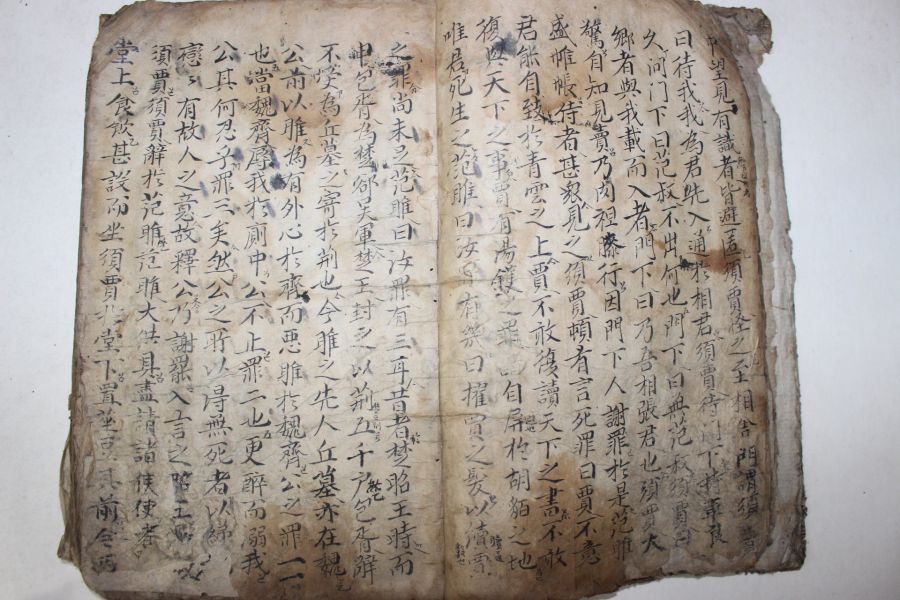 中望見有識者皆避匿須賈怪之至相舍門謂須賈
曰待我我為君先入通於相君須賈待門下持車良
久問門下曰范叔不出何也門下曰無范叔須賈曰
鄉者與我載而入者門下曰乃吾相張君也須賈大
驚自知見賣乃肉袒膝行因門下人謝罪於是范雎
盛帷帳待者甚衆見之須賈頓首言死罪曰賈不意
君能自致於青雲之上賈不敢復讀天下之書不敢
復與天下之事賈有湯鑊之罪 自屏於胡貊之地
唯君死生之范雎曰汝罪有幾曰擢賈之髮以續賈
之罪尚未足范雎曰汝罪有三耳昔者楚昭王時而
申包胥為楚郤吳軍楚王封之以荊五千戶包胥辭
不受為丘墓之寄於荊也今雎之先人丘墓亦在魏
公前以雎為有外心於齊而惡雎於魏齊公之罪一
也當魏齊辱我於厠中公不止罪二也更醉而溺我
公其何忍乎罪三矣然公之所以得無死者以綈袍
戀戀有故人之意故釋公乃謝罷入言之昭王
須賈須賈辭於范雎范雎大供具盡請諸侯使者
堂上食飲甚設而坐須賈於堂下置莝豆其前令兩